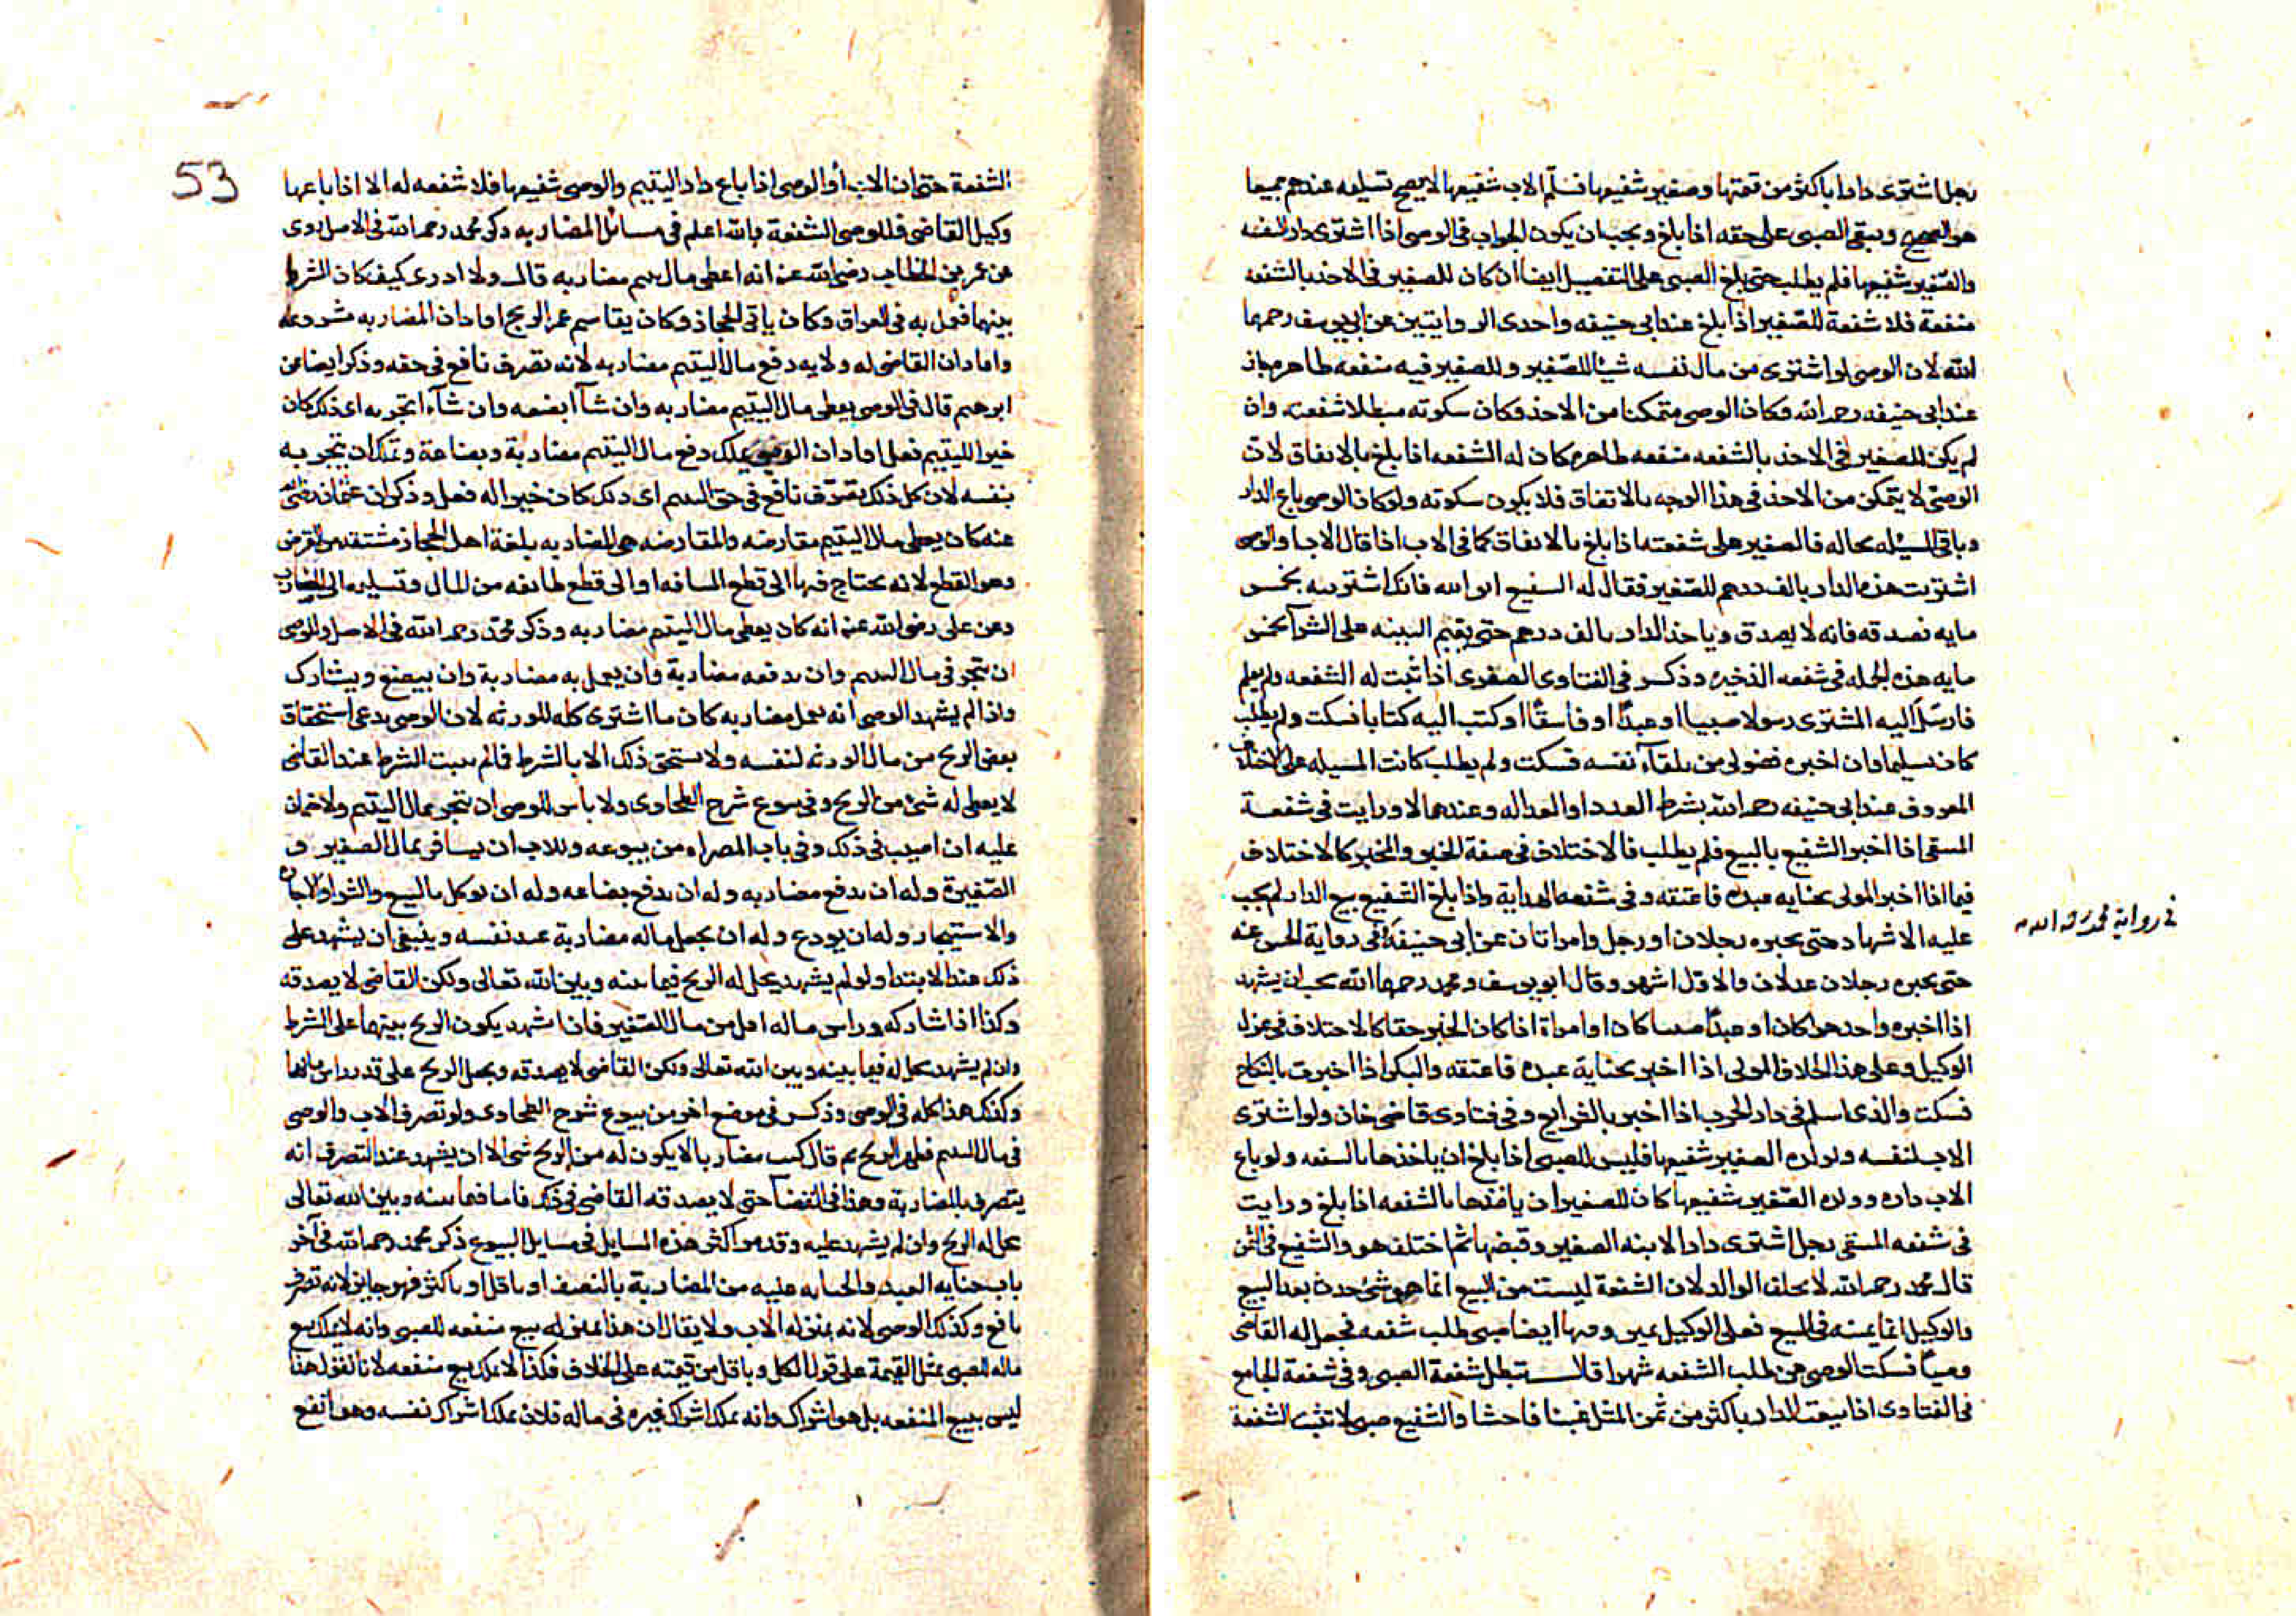 رجل اشترى دارا باكثر من قيمتها وصغير شفيعها فسلّم الاب شفيعها لا يصح تسليمه عندهم جميعا
هو الصحيح ويبقى الصبى على حقه اذا بلغ ويجب ان يكون الجواب فى الوصى اذا اشترى دارا لنفسه
والصّغير شفيعها فلم يطلب حتى بلغ الصبى على التفصيل ايضا ان كان للصغير فى الاخذ بالشفعه
منفعة فلا شفعة للصّغير اذا بلغ عند ابى حنيفه واحدى الروايتين عن ابى يوسف رحمهما
الله لان الوصى لو اشترى من مال نفسه شيئا للصّغير وللصغير فيه منفعه ظاهره جاز
عند ابى حنيفه رحمه الله وكان الوصى متمكنا من الاخذ وكان سكوته مبطلا شفعته وان
لم يكن للصغير فى الاخذ بالشفعه منفعه ظاهره كان له الشفعه اذا بلغ بالاتفاق لان
الوصىّ لا يتمكن من الاخذ فى هذا الوجه بالاتفاق فلا يكون سكوته ولو كان الوصى باع الدار
وباقى المسئله بحاله فالصغير على شفعته اذا بلغ بالاتفاق كما فى الاب اذا قال الاب او الوصى
اشتريت هذه الدار بالف درهم للصّغير فقال له الشفيع اتق الله فانك اشتريته بخمس
مايه فصدقه فانه لا يصدق وياخذ الدار بالف درهم حتى يقيم البينه على الشرآ بخمس
مايه هذه الجمله فى شفعه الذخيره وذكر فى الفتاوى الصغرى اذا ثبت له الشفعه ولم يعلم
فارسل اليه المشترى رسولا صبيا او عبدًا او فاسقًا او كتب اليه كتابا فسكت ولم يطلب
كان تسليما وان اخبره فضولى من تلقآء نفسه فسكت ولم يطلب كانت المسيله على الاختلاف
المعروف عند ابى حنيفه رحمه الله بشرط العدد او العداله وعندهما لا ورايت فى شفعة
المنتقى اذا اخبر الشفيع بالبيع فلم يطلب فالاختلاف فى صفة الخبر والمخبر كالاختلاف
فيما اذا اخبر المولى بجنايه عبده فاعتقه وفى شفعه الهداية واذا بلغ الشفيع بيع الدار لم يجب
عليه الاشهاد حتى يخبره رجلان او رجل وامراتان عن ابى حنيفة وفى رواية الحسن عنه
فى رواية محمد رحمه الله
حتى يخبره رجلان عدلان والاوّل اشهر وقال ابو يوسف ومحمد رحمهما الله يجب ان يشهد
اذا اخبره واحد حرا كان او عبدًا صبيا كان او امراة اذا كان الخبر حقا كالاختلاف فى عزل
الوكيل وعلى هذا الخلاف المولى اذا اخبر بجناية عبده فاعتقه والبكر اذا اخبرت بالنكاح
فسكت والذى اسلم فى دار الحرب اذا اخبر بالشرايع وفى فتاوى قاضى خان ولو اشترى
الاب لنفسه وولده الصغير شفيعها فليس للصبى اذا بلغ ان ياخذها بالشفعه ولو باع
الاب داره وولده الصّغير شفيعها كان للصغير ان ياخذها بالشفعه اذا بلغ ورايت
فى شفعه المنتقى رجل اشترى دارا لابنه الصغير وقبضها ثم اختلف هو والشفيع فى الثمن
قال محمد رحمه الله لا يحلف الوالد لان الشفعة ليست من البيع انما هو شئ حدث بعد البيع
والوكيل انما يمينه فى البيع فعلى الوكيل يمين وفيها ايضا صبى طلب شفعه فجعل له القاضى
وصيًا فسكت الوصى عن طلب الشفعه شهرا قال تبطل شفعة الصبى وفى شفعة الجامع
فى الفتاوى اذا بيعت الدار باكثر من ثمن المثل غبنا فاحشا والشفيع صبى لا تثبت الشفعة
53
الشفعة حتى ان الاب او الوصى اذا باع دار اليتيم والوصى شفيعها فلا شفعه له الا اذا باعها
وكيل القاضى فللوصى الشفعة بالله اعلم فى مسائل المضاربه ذكر محمد رحمه الله فى الاصل روى
عن عمر بن الخطاب رضى الله عنه انه اعطى مال يتيم مضاربه قال ولا ادرى كيف كان الشرط
بينهما فعمل به فى العراق وكان ياتى الحجاز وكان يقاسم عمر الربح افاد ان المضاربه مشروعه
وافاد ان القاضى له ولايه دفع مال اليتيم مضاربه لانه تصرف نافع فى حقه وذكر ايضا عن
ابرهيم قال فى الوصى يعطى مال اليتيم مضاربه وان شآ ابضعه وان شآء اتجر به اى ذلك كان
خير اليتيم فعل افاد ان الوصى يملك دفع مال اليتيم مضاربة وبضاعة ويملك ان يتجر به
بنفسه لان كل ذلك تصرّف نافع فى حق اليتيم اى ذلك كان خيرا له فعل وذكر ان عثمان رضى الله
عنه كان يعطى مال اليتيم مقارضه والمقارضه هى المضاربه بلغة اهل الحجاز مشتقه من القرض
وهو القطع لانه يحتاج فيها الى قطع المسافه او الى قطع طائفه من المال وتسليمه الى المضارب
وعن على رضى الله عنه انه كان يعطى مال اليتيم مضاربه وذكر محمد رحمه الله فى الاصل وللوصى
ان يتجر فى مال اليتيم وان يدفعه مضاربة وان يعمل به مضاربة وان يبضع ويشارك
واذا لم يشهد الوصى انه يعمل مضاربه كان ما اشترى كله للورثه لان الوصى يدعى استحقاق
بعض الربح من مال الورثه لنفسه ولا يستحق ذلك الا بالشرط فالم يثبت الشرط عند القاضى
لا يعطى له شئ من الربح وفى بيوع شرح الطحاوى ولا باس للوصى ان يتجر بمال اليتيم ولا ضمان
عليه ان اصيب فى ذلك وفى باب المصراه من بيوعه وللاب ان يسافر بمال الصغير و
الصّغيرة وله ان يدفع مضاربه وله ان يدفع بضاعه وله ان يوكل بالبيع والشرا والاجاره
والاستيجار وله ان يودع وله ان يجعل ماله مضاربة عند نفسه وينبغى ان يشهد على
ذلك عند الابتدا ولو لم يشهد يحل له الربح فيما بينه وبين الله تعالى ولكن القاضى لا يصدقه
وكذا اذا شاركه وراس ماله اقل من مال الصّغير فان اشهد يكون الربح بينهما على الشرط
وان لم يشهد يحل له فيما بينه وبين الله تعالى ولكن القاضى لا يصدقه ويجعل الربح على قدر راس مالهما
وكذلك هذا كله فى الوصى وذكر فى موضع اخر من بيوع شرح الطحاوى ولو تصرف الاب والوصى
فى مال اليتيم فظهر الربح ثم قال كنت مضاربا لا يكون له من الربح شى الا ان يشهد عند التصرف انه
يتصرف بالمضاربة وهذا فى القضآ حتى لا يصدقه القاضى فى ذلك فاما فيما بينه وبين الله تعالى
يحل له الربح وان لم يشهد عليه وقد مر اكثر هذه المسايل فى مسايل البيوع ذكر محمد رحمه الله فى آخر
باب جنايه العبد والجنايه عليه من المضاربة بالنصف او باقل او باكثر فهو جايز لانه تصرف
نافع وكذلك الوصى لانه بمنزله الاب ولا يقال ان هذا بمنزله بيع منفعه للصبى وانه لا يملك بيع
ماله للصبى بمثل القيمة على قول الكل وباقل من قيمته على الخلاف فكذا لا يملك بيع منفعه لانا نقول هذا
ليس ببيع المنفعه بل هو اشراك وانه يملك اشراك غيره فى ماله فلان يملك اشراك نفسه وهو انفع